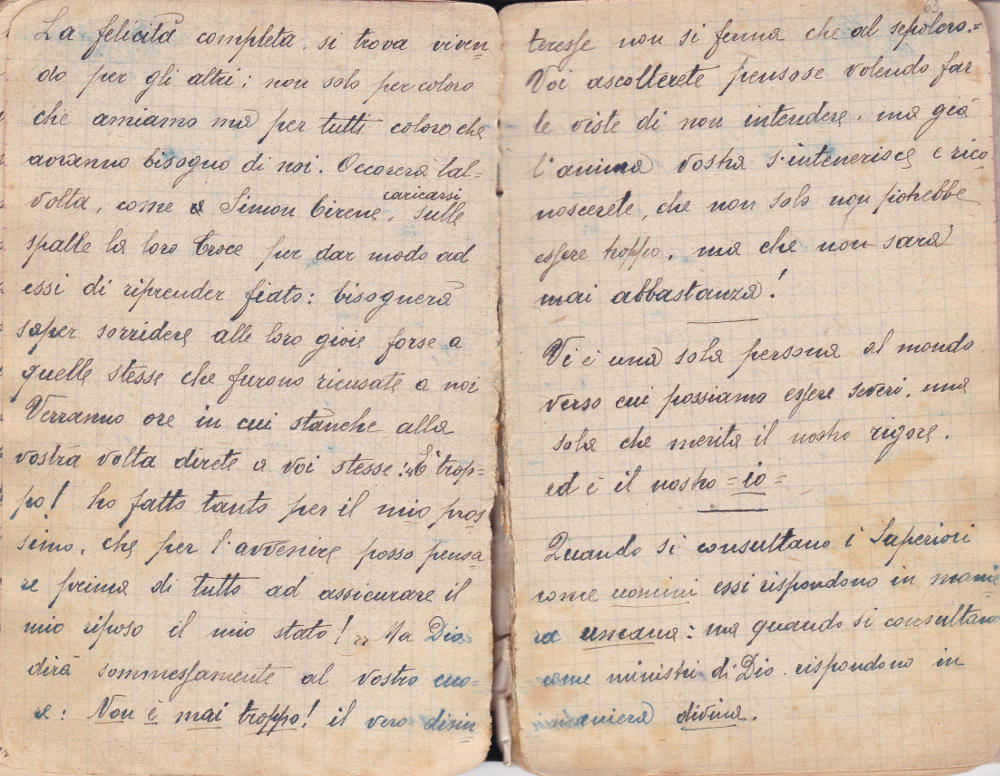 La felicità completa, si trova viven
do per gli altri; non solo per coloro
che amiamo ma per tutti coloro che
avranno bisogno di noi. Occorerà tal-
volta, come a Simon Cirene, caricarsi sulle
spalle la loro Croce per dar modo ad
essi di riprender fiato: bisognerà
saper sorridere alle loro gioie forse a
quelle stesse che furono ricusate a noi
Verranno ore in cui stanche alla
vostra volta direte a voi stesse: „È trop=
po! ho fatto tanto per il mio pros
simo, che per l'avvenire posso pensa
re prima di tutto ad assicurare il
mio riposo il mio stato! „ Ma Dio
dirà sommessamente al vostro cuo=
re: Non è mai troppo! il vero disin
63
teresse non si ferma che al sepolcro.=
Voi ascolterete pensose volendo far
le viste di non intendere, ma già
l'anima vostra s'intenerisce e rico
noscerete, che non solo non potrebbe
essere troppo, ma che non sarà
mai abbastanza!
Vi è una sola persona al mondo
verso cui possiamo essere severi, una
sola che merita il nostro rigore,
ed è il nostro =io=
Quando si consultano i Superiori
come uomini essi rispondono in manie
ra umana: ma quando si consultano
come ministri di Dio rispondono in
maniera divina.